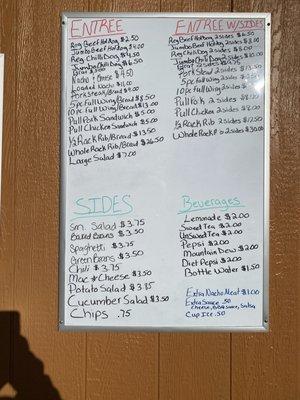 ENTREE
Reg Beef Hot Dog $2.50
Jumbo Beef Hot Dog $4.00
Reg Chili Dog $4.50
Jumbo Chili Dog $6.50
Nacho & Cheese $4.50
Loaded Nacho $11.00
Pork Steak/Bread $9.00
5pc Full Wing/Bread $8.50
10pc Full Wing/Bread $13.00
Pull Pork Sandwich $5.00
Pull Chicken Sandwich $5.00
1/2 Rack Rib/Bread $13.50
Whole Rack Rib/Bread $26.50
Large Salad $7.00
ENTREE W/SIDES
Reg Beef Hot Dog 2 sides
Jumbo Beef Hot Dog 2 sides
Reg Chili Dog 2 sides
Jumbo Chili Dog 2 sides
2 sides
Pork Steak 2 sides
5pc Full Wing 2 sides
10pc Full Wing 2 sides
Pull Pork 2 sides
Pull Chicken 2 sides
1/2 Rack Rib 2 sides $17.50
Whole Rack Rib 2 sides $30.50
SIDES
Sm. Salad $3.75
Baked Beans $3.50
Spaghetti $3.75
Green Beans $3.50
Chili $3.75
Mac & Cheese $3.50
Potato Salad $3.75
Cucumber Salad $3.50
Chips .75
Beverages
Lemonade $2.00
Sweet Tea $2.00
UnSweet Tea $2.00
Pepsi $2.00
Mountain Dew $2.00
Diet Pepsi $2.00
Bottle Water $1.50
Extra Nacho Meat $1.00
Extra Sauce .50
Cheese, BBQ Sauce, Salsa
Cup Ice .50